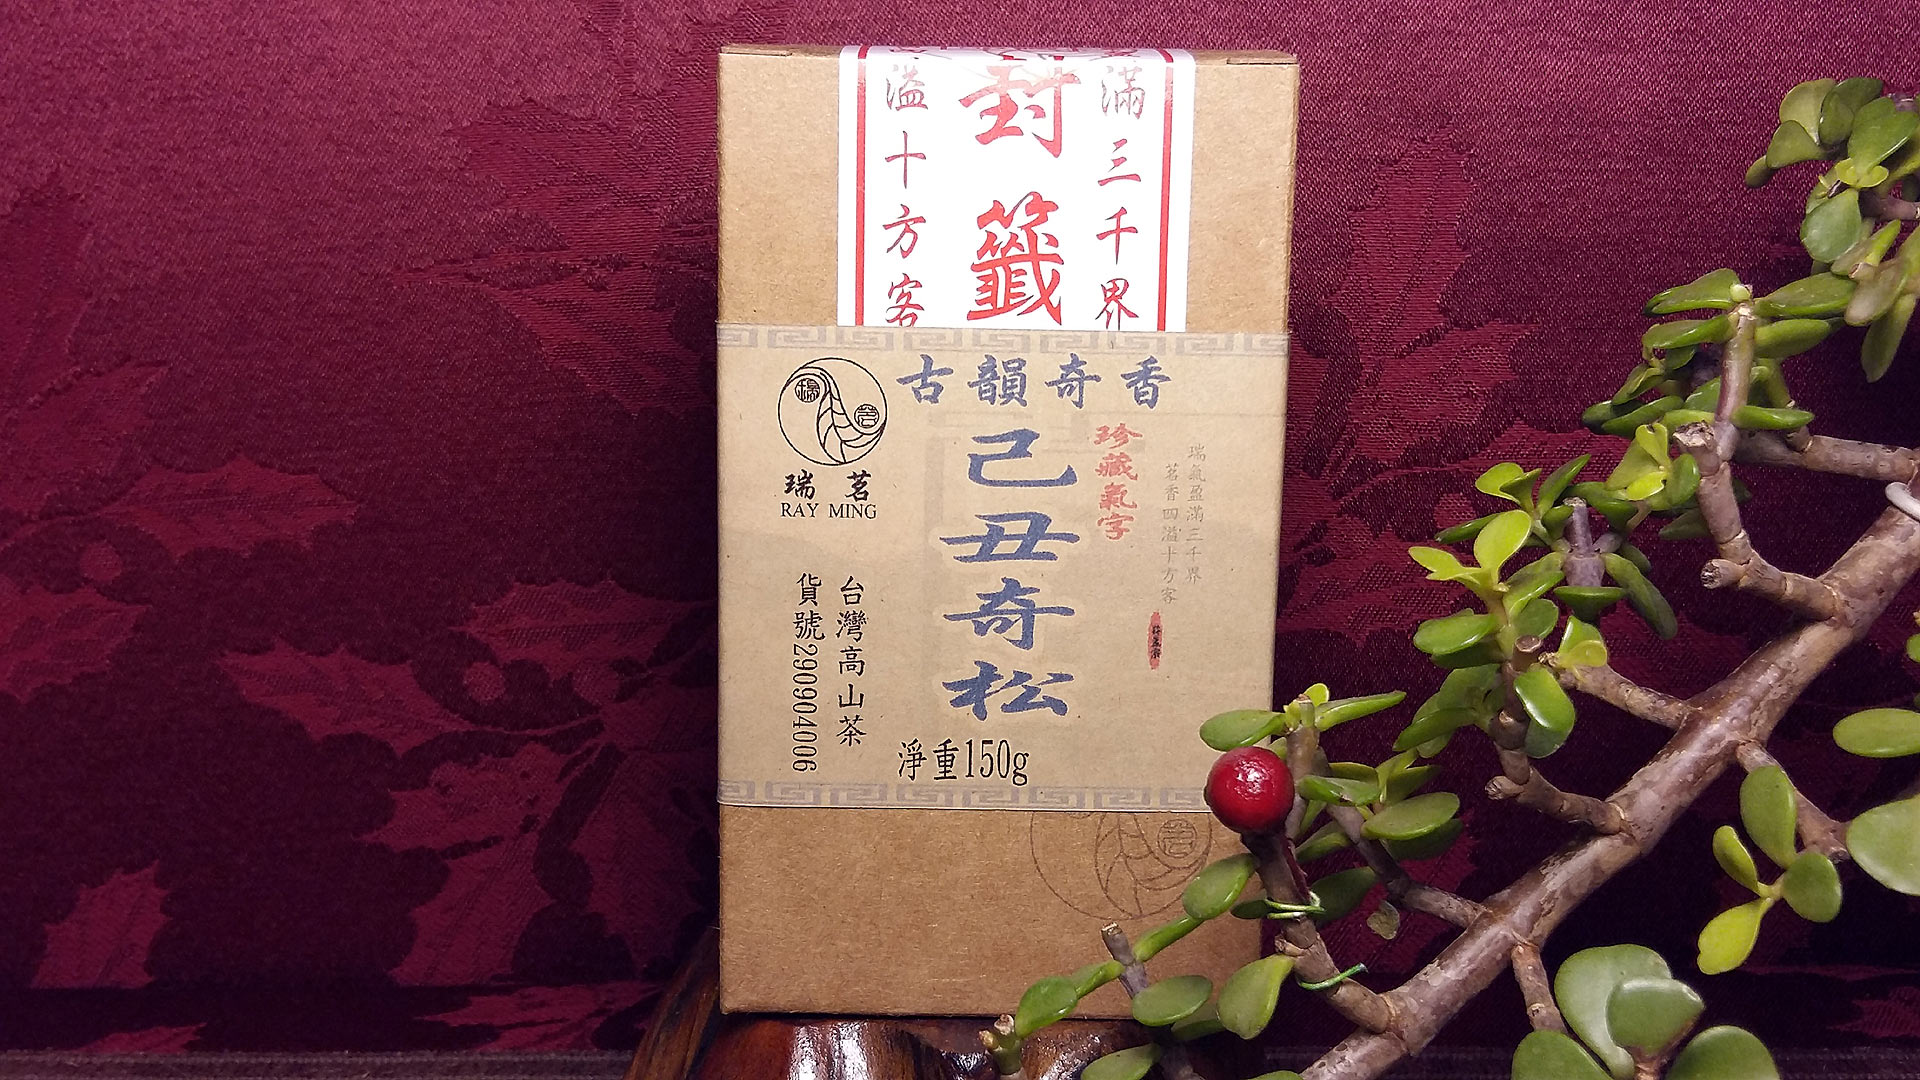 封籤
滿三千界
溢十方客
古韻奇香
己丑奇松
珍藏氣字
瑞氣盈滿三千界
茗香四溢十方客
瑞茗
RAY MING
台灣高山茶
貨號290904006
淨重150g